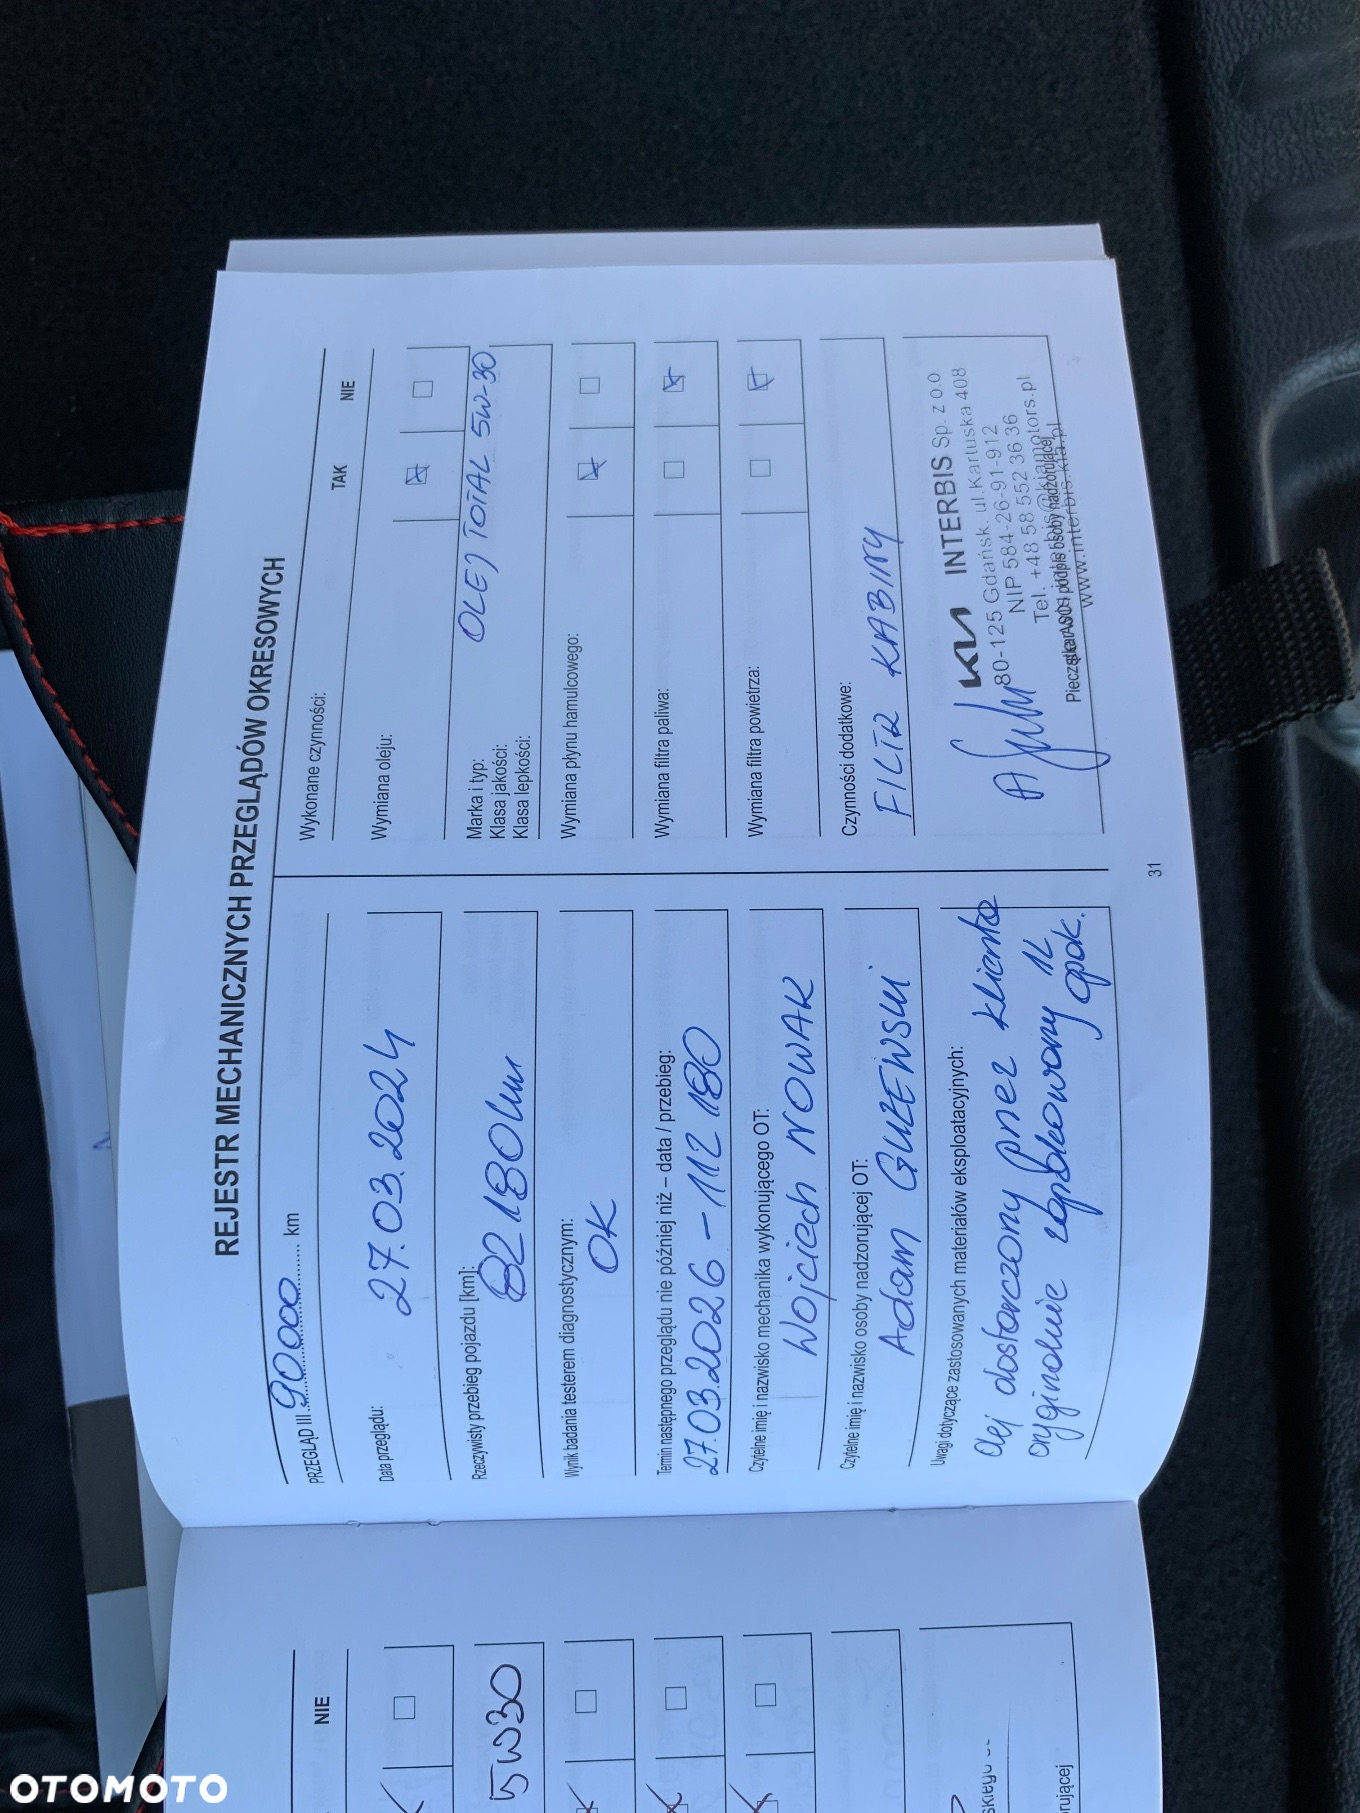 REJESTR MECHANICZNYCH PRZEGLĄDÓW OKRESOWYCH
PRZEGLĄD III 90 000 km
Data przeglądu:
27.03.2024
Rzeczywisty przebieg pojazdu [km]:
82180 km
Wynik badania testerem diagnostycznym:
OK
Termin następnego przeglądu nie później niż – data / przebieg:
27.03.2026 - 112 180
Czytelne imię i nazwisko mechanika wykonującego OT:
Wojciech NOWAK
Czytelne imię i nazwisko osoby nadzorującej OT:
Adam
Uwagi dotyczące zastosowanych materiałów eksploatacyjnych:
Olej dostarczony przez klienta
oryginalnie zapakowany 1L
opak.
Wykonane czynności:
TAK NIE
Wymiana oleju:
Marka i typ: OLEJ TOTAL 5W-30
Klasa jakości:
Klasa lepkości:
Wymiana płynu hamulcowego:
Wymiana filtra paliwa:
Wymiana filtra powietrza:
Czynności dodatkowe:
FILTR KABINY
KIA INTERBIS Sp. z o.o.
80-125 Gdańsk. ul.Kartuska 408
NIP 584-26-91-912
Tel. +48 58 552 36 36
interbis@kiamotors.pl
Pieczątka ASO i podpis osoby nadzorującej
www.interbis.kia.pl
31
NIE
5W30
rującej
OTOMOTO